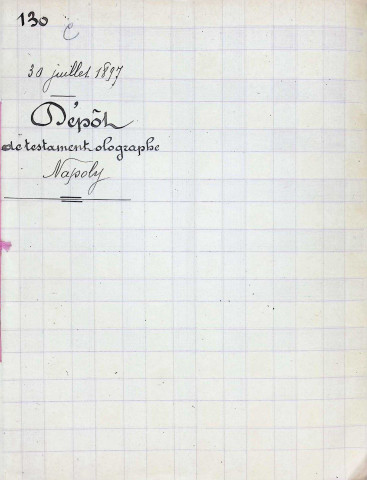 130 C
30 juillet 1897
Dépôt
de testament olographe
Napoly